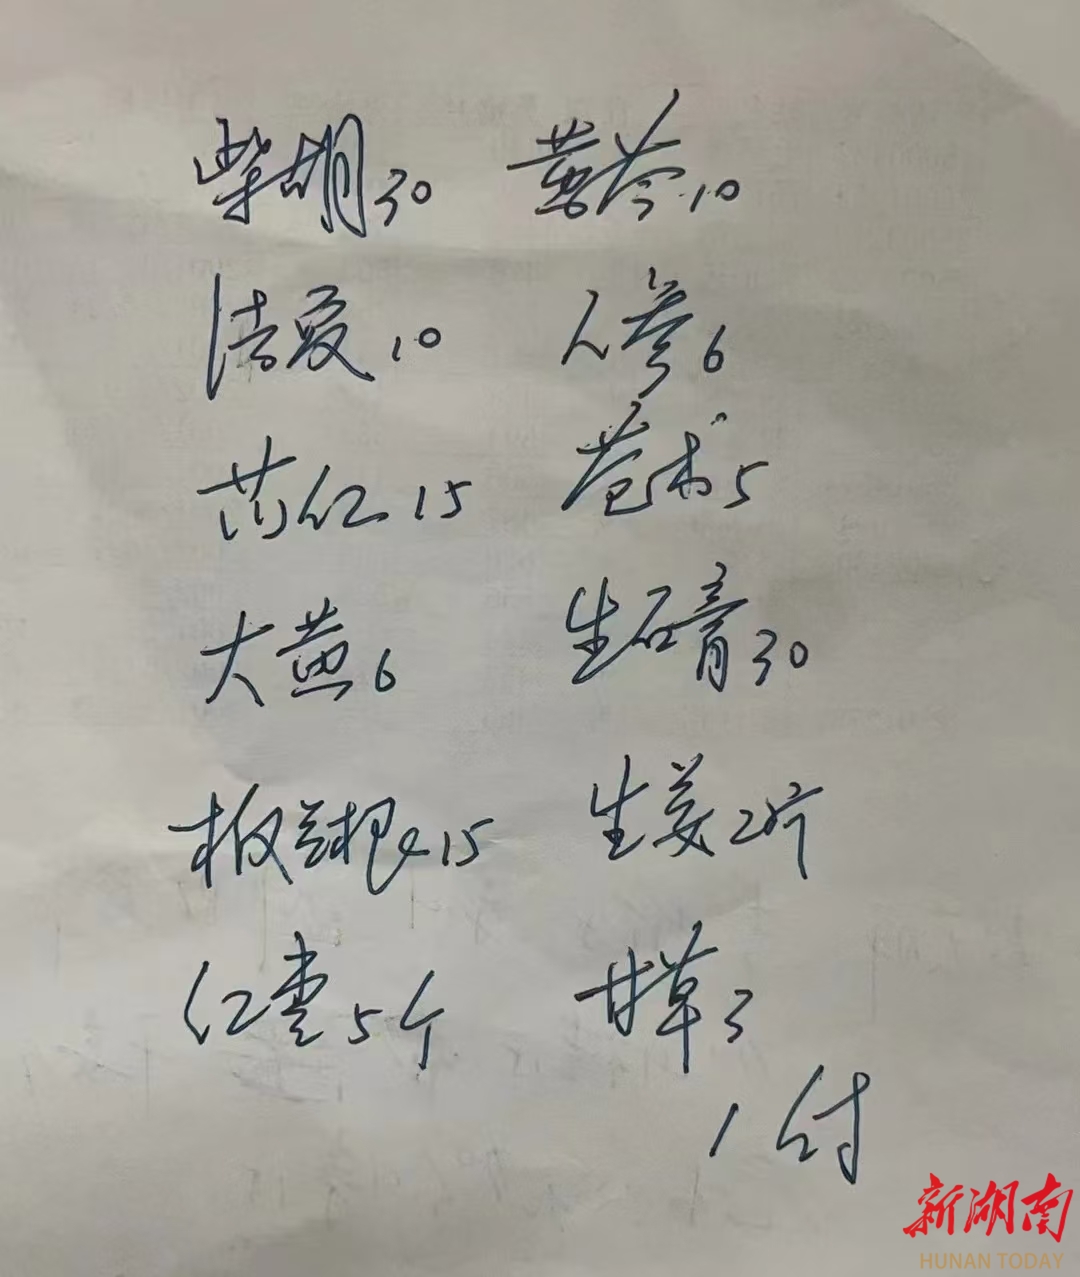 柴胡30 黄芩10
法夏10 人参6
芍红15 苍术5
大黄6 生石膏30
板兰根15 生姜2片
红枣5个 甘草3
1付
新湖南
HUNAN TODAY